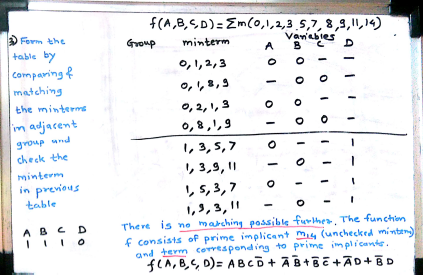 f(A,B,C,D)=Σm(0,1,2,3,5,7,8,9,11,14)
3) Form the
table by
comparing &
matching
the minterms
in adjacent
group and
check the
minterm
in previous
table
Group minterm Variables
A B C D
0,1,2,3 0 0 - -
0,1,8,9 - 0 0 -
0,2,1,3 0 0 - -
0,8,1,9 - 0 0 -
1,3,5,7 0 - - 1
1,3,9,11 - 0 - 1
1,5,3,7 0 - - 1
1,9,3,11 - 0 - 1
A B C D
1 1 1 0
There is no matching possible further. The function
f consists of prime implicant m14 (unchecked minterm)
and term corresponding to prime implicants.
f(A,B,C,D)= ABCD̅ + A̅B̅+B̅C̅+A̅D+B̅D